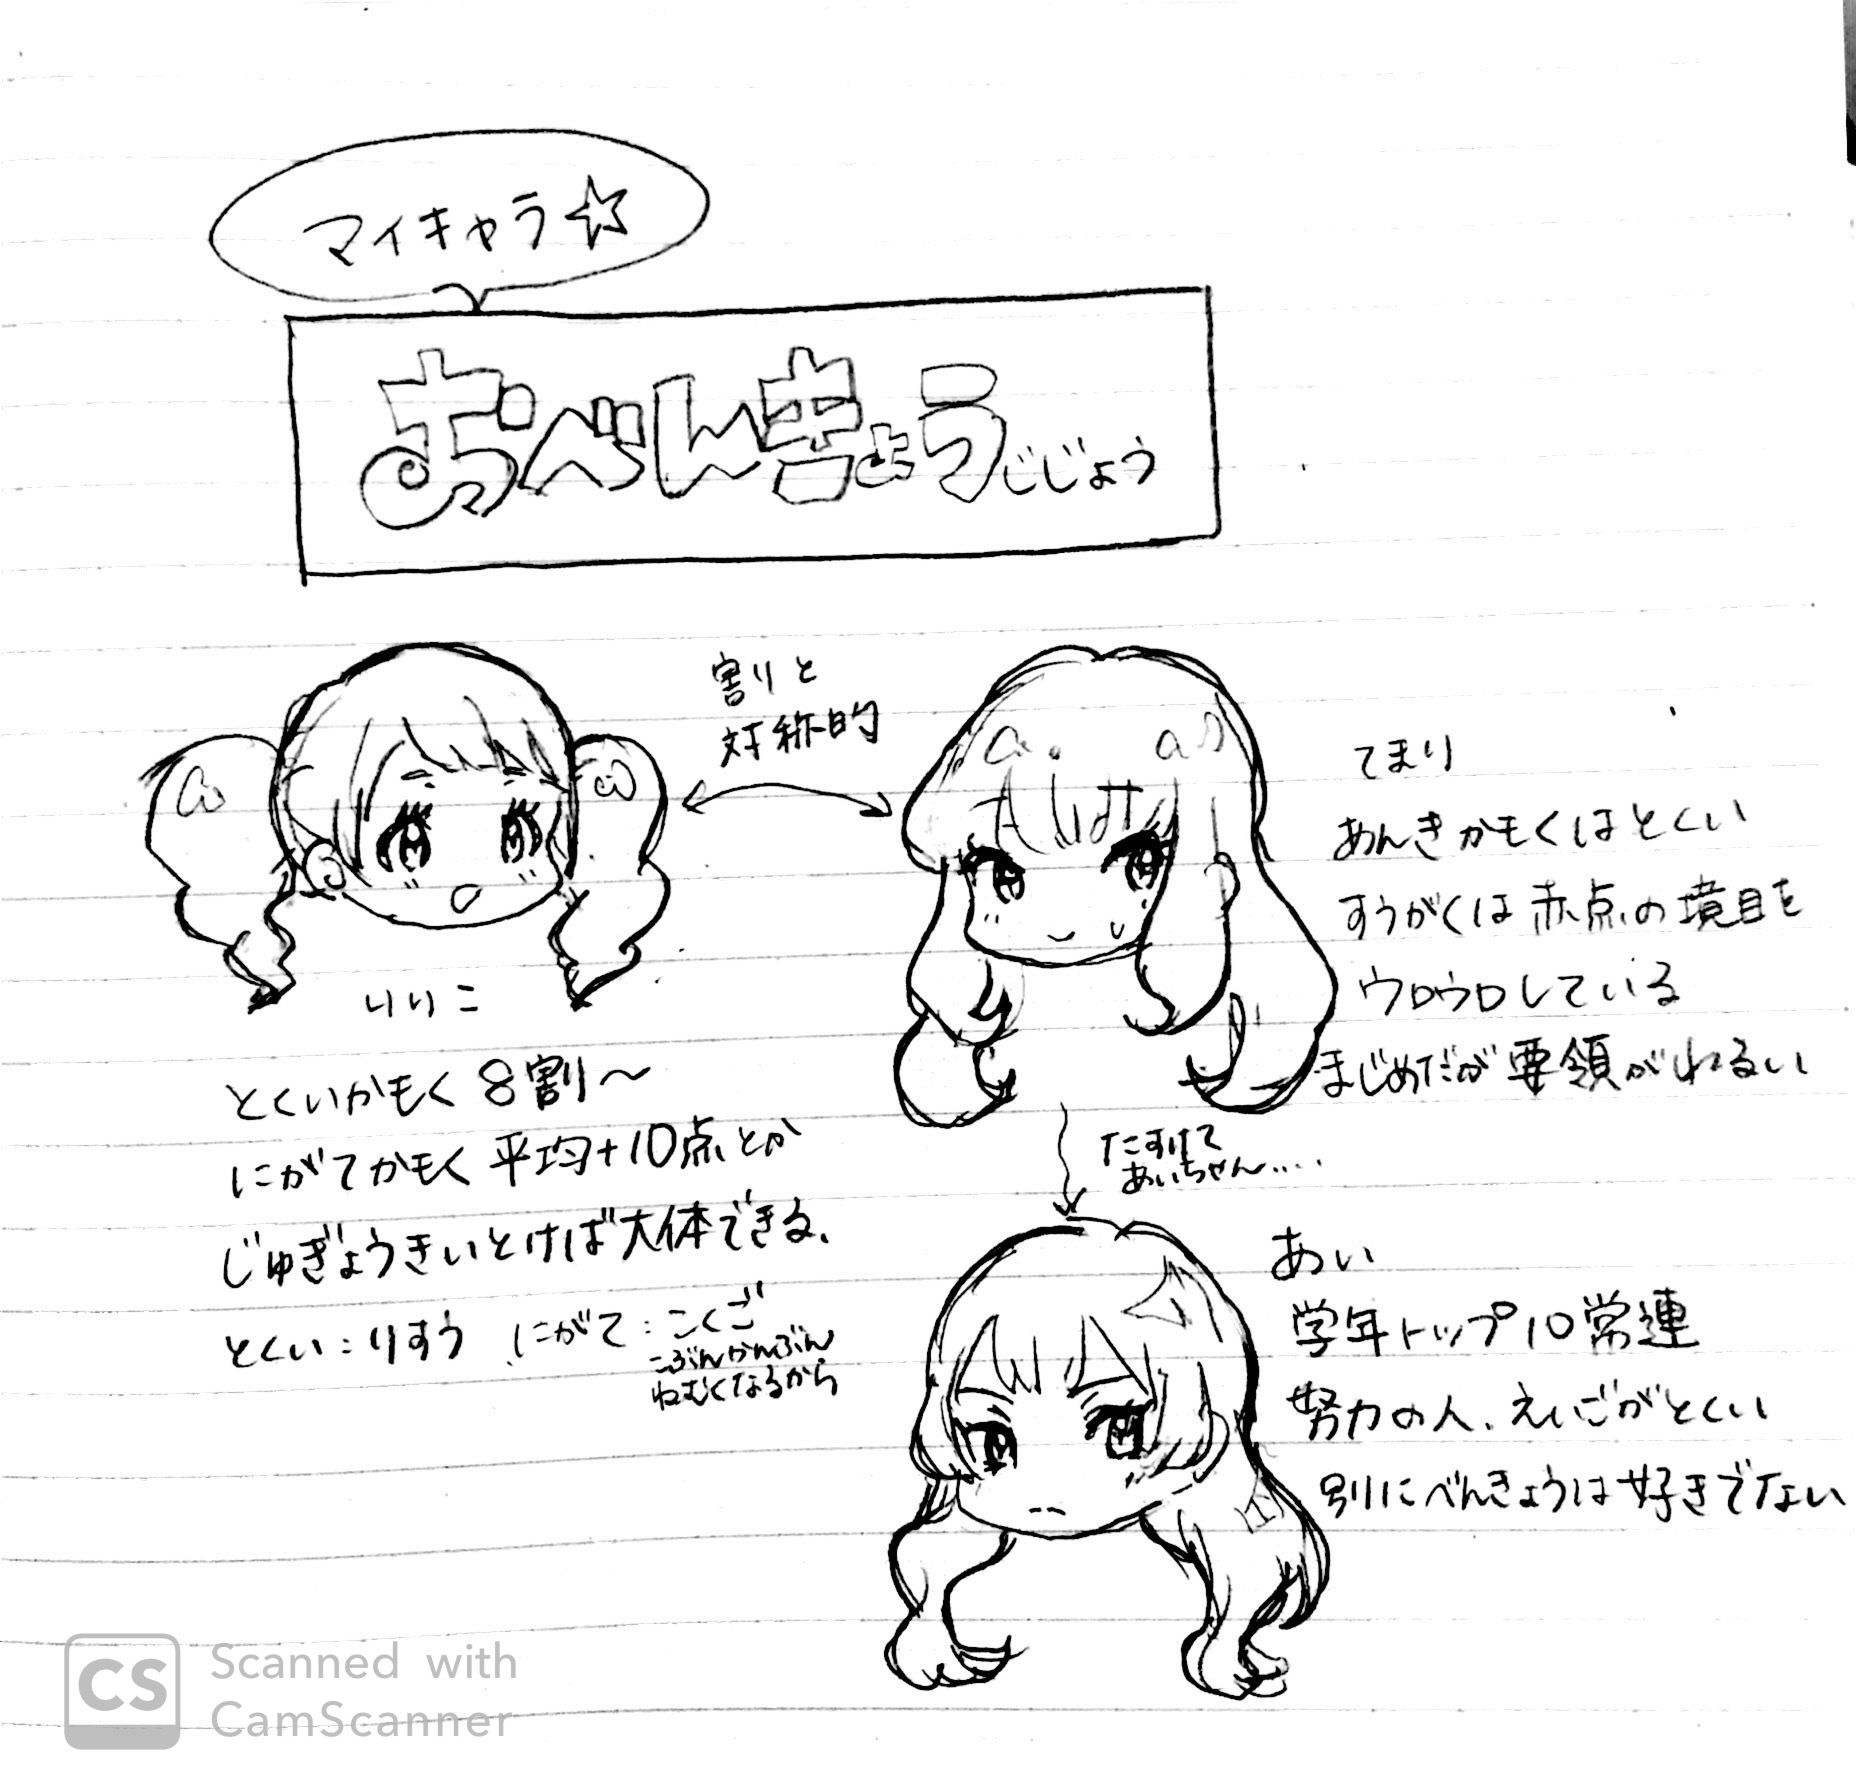 マイキャラ☆
おべんきょうじじょう
割りと
対称的
りりこ
とくいかもく8割〜
にがてかもく平均+10点とか
じゅぎょうきいとけば大体できる、
とくい:りすう にがて:こくご
こぶんかんぶん
ねむくなるから
てまり
あんきかもくはとくい
すうがくは赤点の境目を
ウロウロしている
まじめだが要領がわるい
たすけて
あいちゃん....
あい
学年トップ10常連
努力の人、えいごがとくい
別にべんきょうは好きでない
CS Scanned with
CamScanner